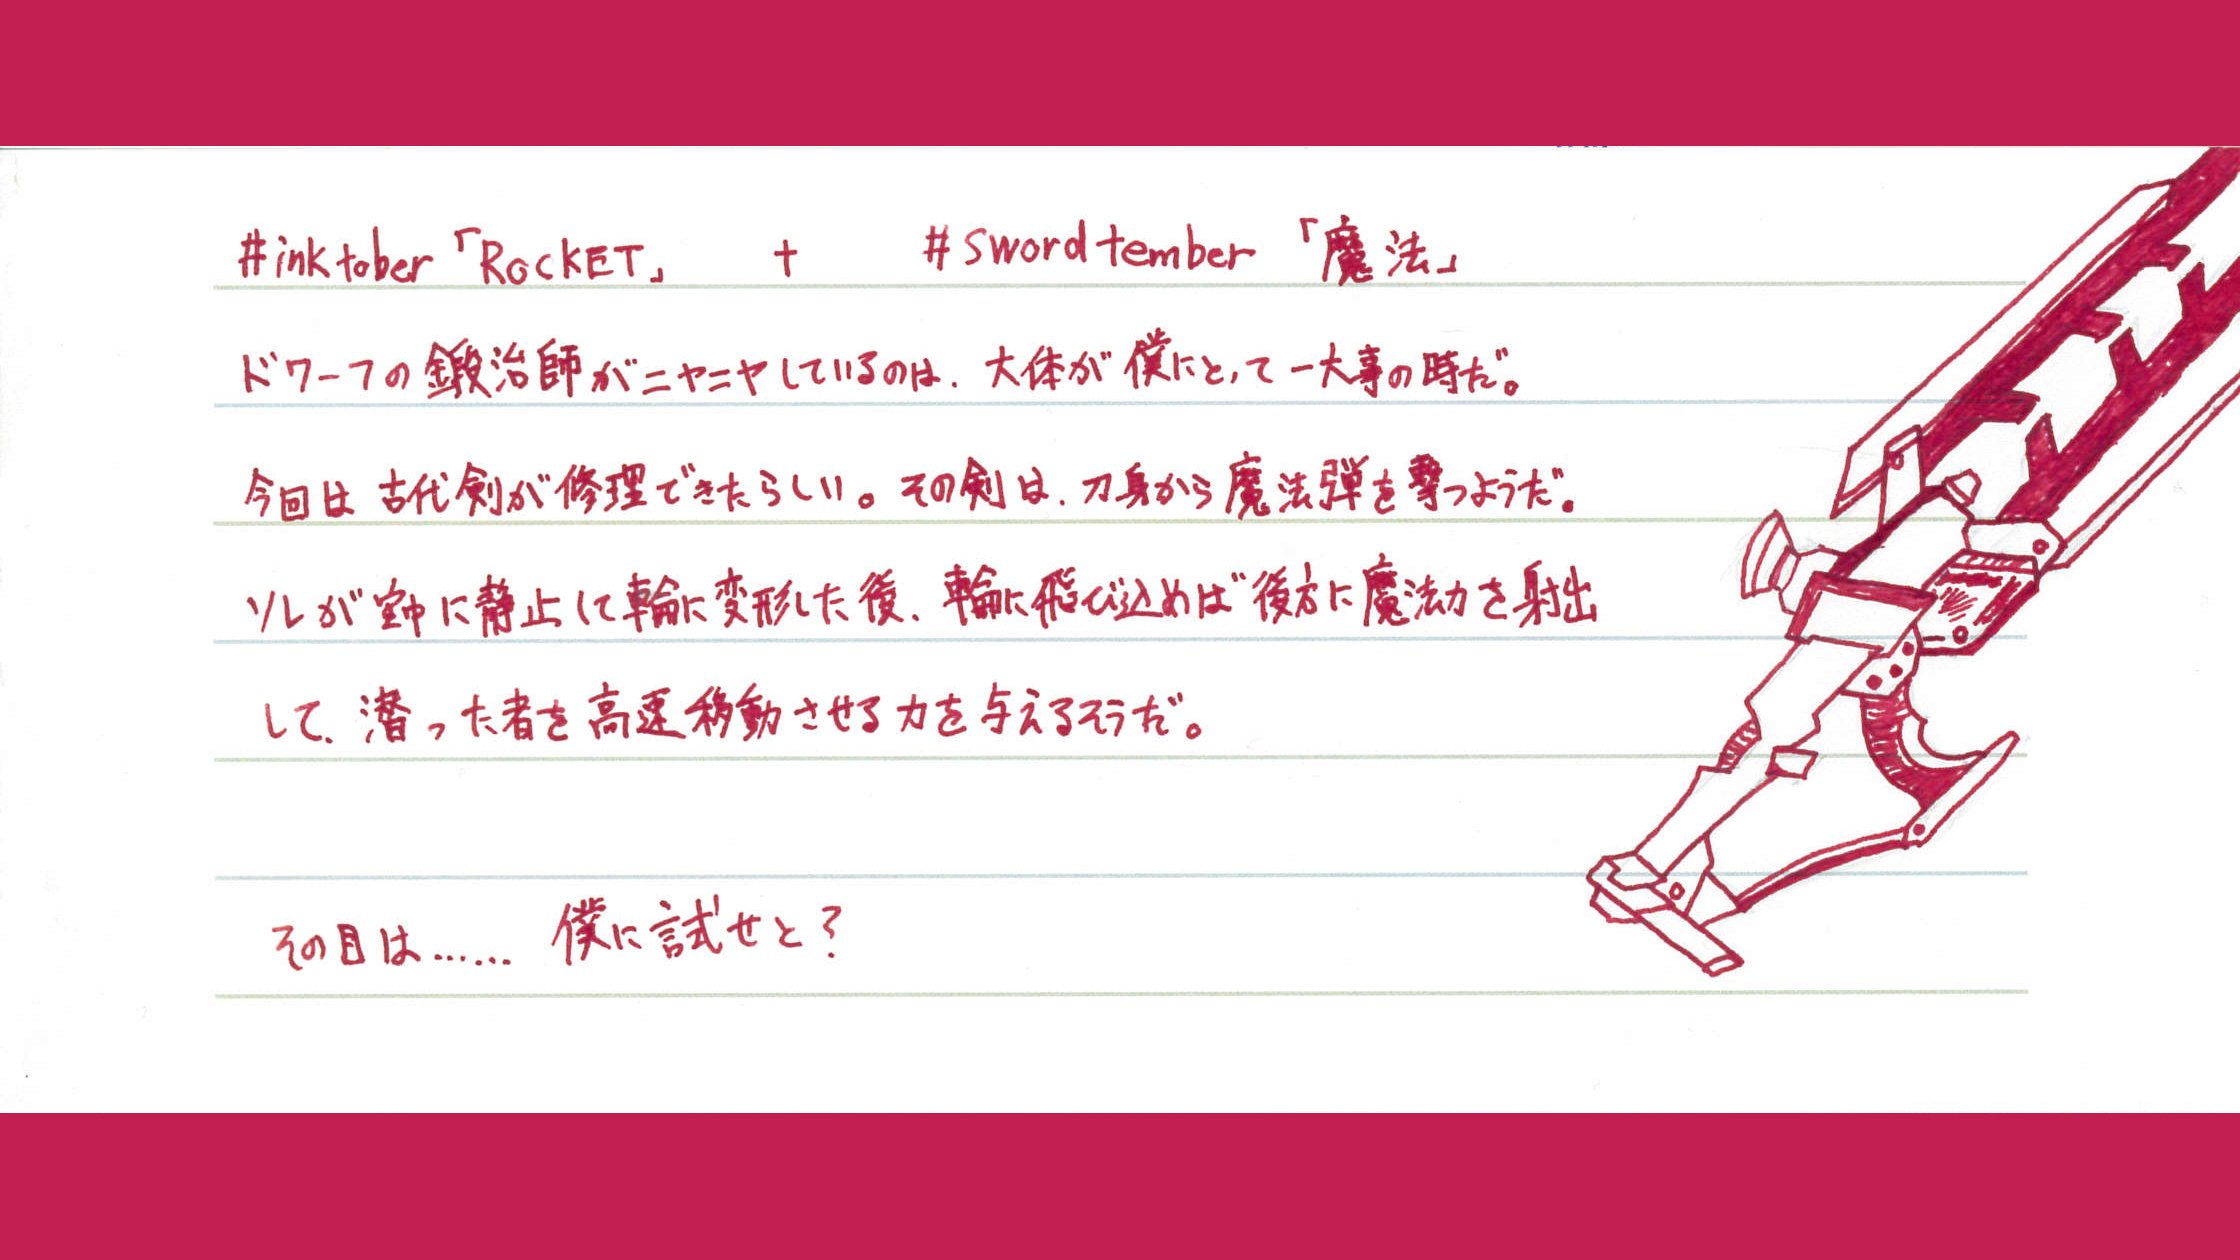 #inktober「ROCKET」 + #swordtember「魔法」
ドワーフの鍛治師がニヤニヤしているのは、大体が僕にとって一大事の時だ。
今回は古代剣が修理できたらしい。その剣は、刀身から魔法弾を撃つようだ。
ソレが空中に静止して輪に変形した後、輪に飛び込めば後方に魔法力を射出
して、潜った者を高速移動させる力を与えるそうだ。
その目は…… 僕に試せと?